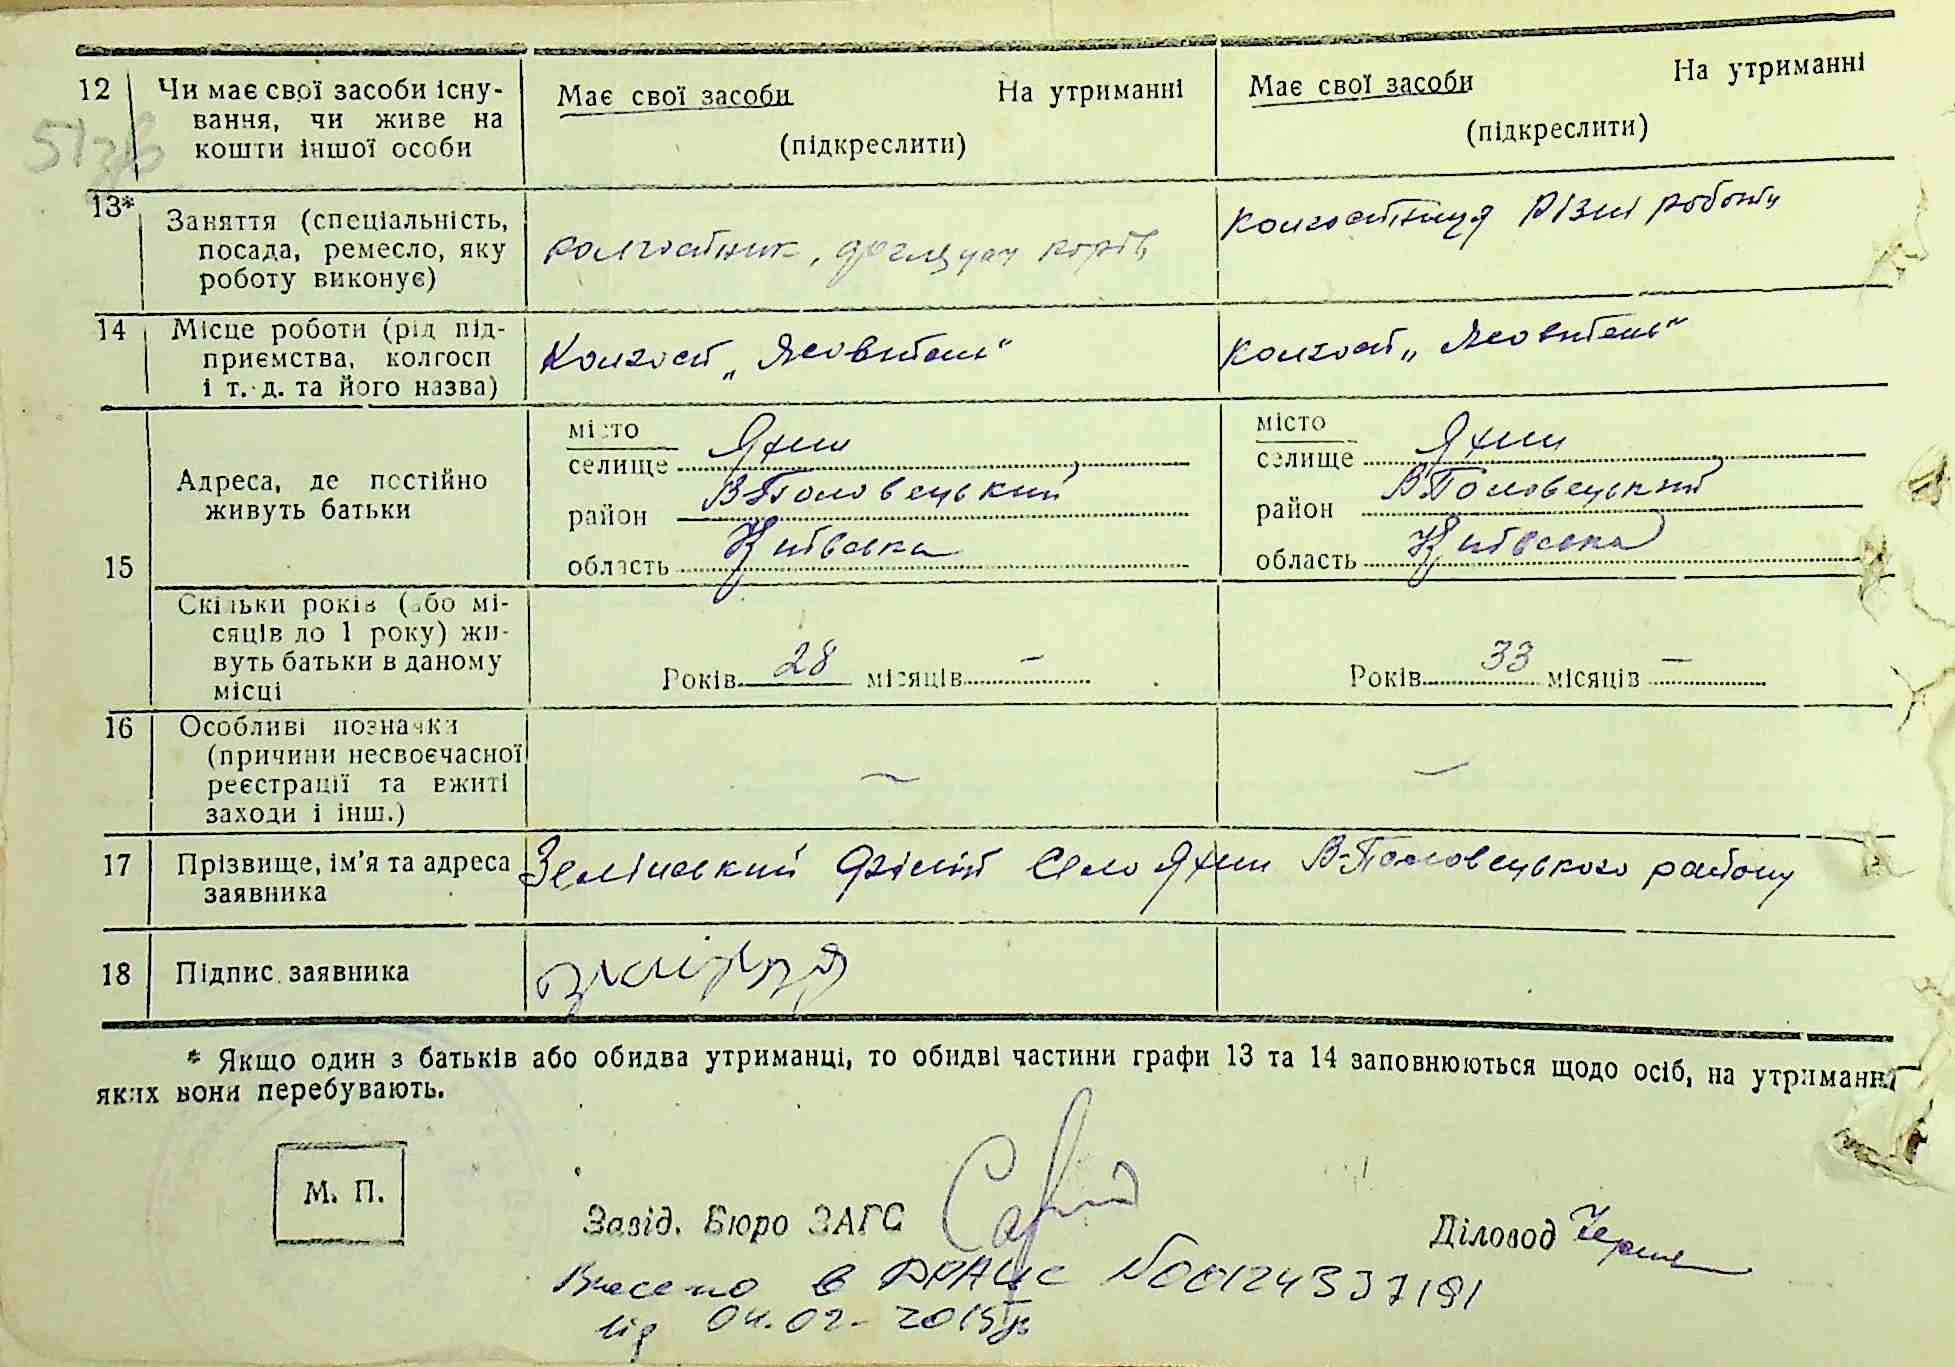 12 Чи має свої засоби існу-
вання, чи живе на
кошти іншої особи
Має свої засоби На утриманні
(підкреслити)
Має свої засоби На утриманні
(підкреслити)
13* Заняття (спеціальність,
посада, ремесло, яку
роботу виконує)
колгоспник, доглядач корів
колгоспниця різні роботи
14 Місце роботи (рід під-
приємства, колгосп
і т. д. та його назва)
Колгосп „
Колгосп „
15 Адреса, де постійно
живуть батьки
місто
селище Яхни
район В-Половецький
область Київська
місто
селище Яхни
район В-Половецький
область Київська
Скільки років (або мі-
сяців до 1 року) жи-
вуть батьки в даному
місці
Років 28 місяців —
Років 33 місяців —
16 Особливі позначки
(причини несвоєчасної
реєстрації та вжиті
заходи і інш.)
—
—
17 Прізвище, ім'я та адреса
заявника
Зелінський село Яхни В-Половецького району
18 Підпис заявника
* Якщо один з батьків або обидва утриманці, то обидві частини графи 13 та 14 заповнюються щодо осіб, на утриманні
яких вони перебувають.
М. П.
Завід. Бюро ЗАГС
Діловод
Внесено в ДРАЦС №00124337191
від 04.02.2019р